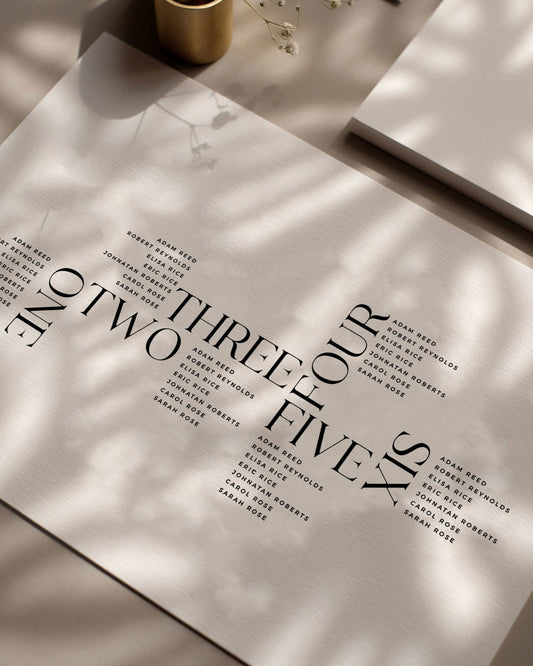 ADAM REED
REYNOLDS
ELISA RICE
ERIC RICE
ROBERTS
ROSE
ONE
ADAM REED
ROBERT REYNOLDS
ELISA RICE
ERIC RICE
JOHNATAN ROBERTS
CAROL ROSE
SARAH ROSE
TWO
THREE
ADAM REED
ROBERT REYNOLDS
ELISA RICE
ERIC RICE
JOHNATAN ROBERTS
CAROL ROSE
SARAH ROSE
FOUR
ADAM REED
ROBERT REYNOLDS
ELISA RICE
ERIC RICE
JOHNATAN ROBERTS
CAROL ROSE
SARAH ROSE
FIVE
ADAM REED
ROBERT REYNOLDS
ELISA RICE
ERIC RICE
JOHNATAN ROBERTS
CAROL ROSE
SARAH ROSE
SIX
ADAM REED
ROBERT REYNOLDS
ELISA RICE
ERIC RICE
JOHNATAN ROBERTS
CAROL ROSE
SARAH ROSE